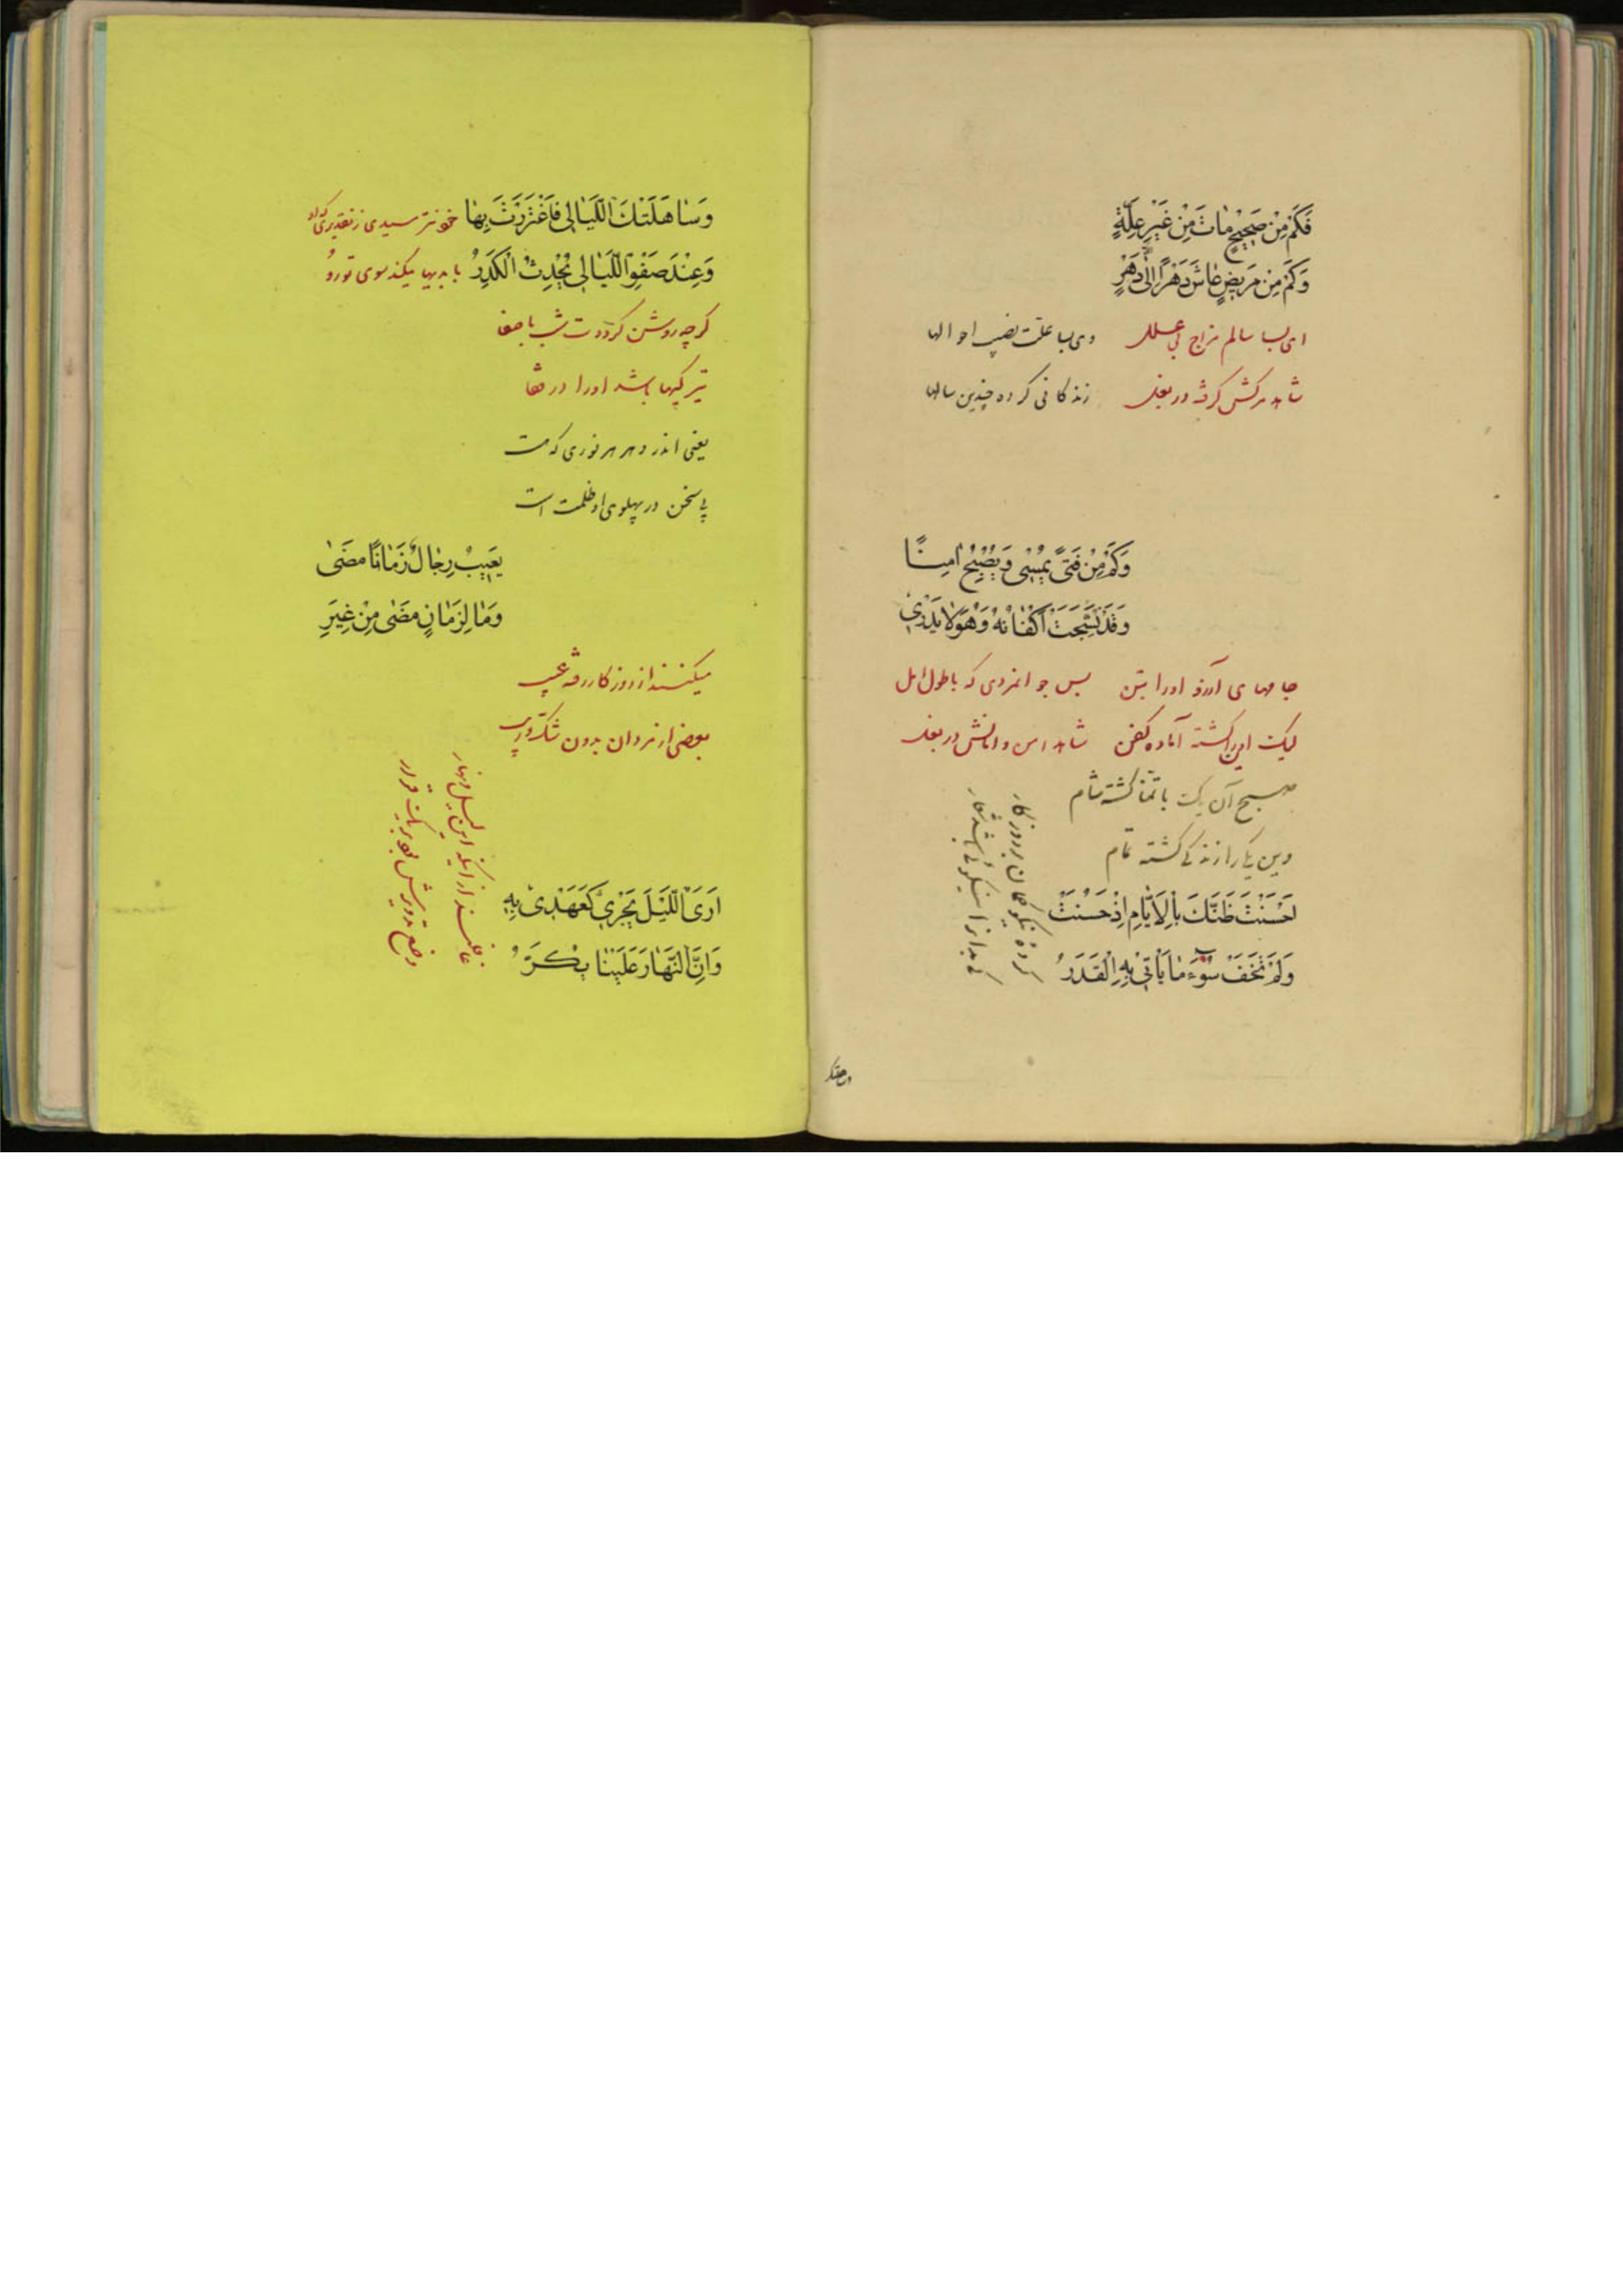 فَكَمْ مِنْ صَحِيحٍ مَاتَ مِنْ غَيْرِ عِلَّةٍ
وَكَمْ مِنْ مَرِيضٍ عَاشَ دَهْرًا إِلَى دَهْرٍ
ای بسا سالم مزاج بی علل وی بسا علت نصیب احوالها
شاهد مرگش گرفته در بغل زندگانی کرده چندین سالها
وَكَمْ مِنْ فَتًى يُمْسِي وَيُصْبِحُ آمِنًا
وَقَدْ نُسِجَتْ أَكْفَانُهُ وَهُوَ لَا يَدْرِي
جامهای آرزو او را بتن بس جوانمردی که با طول امل
لیک این گشته آماده کفن شاهد امن و امانش در بغل
صبح آن یک با تمنا گشته شام
وین یک را زندگی گشته تمام
اَحْسَنْتَ ظَنَّكَ بِالْاَيَّامِ اِذْ حَسُنَتْ
وَلَمْ تَخَفْ سُوْءَ مَا يَأْتِيْ بِهِ الْقَدَرُ
کردهٔ نیکو گمان بروزگار
وَسَاهَلَتْكَ اللَّيَالِي فَاغْتَرَرْتَ بِهَا خود نترسیدی ز تقدیری که او
وَعِنْدَ صَفْوِ اللَّيَالِي يُحْدِثُ الْكَدَرُ با بدیها میکند سوی تو رو
گرچه روشن گرددت شب با صفا
تیرگیها باشد او را در قفا
یعنی اندر دهر هر نوری که هست
بی سخن در پهلوی او ظلمت است
يَعِيبُ رِجَالٌ زَمَانًا مَضَى
وَمَا لِزَمَانٍ مَضَى مِنْ غِيَرِ
میکنند از روزگار رفته عیب
بعضی از مردان بدون شک و ریب
اَرَى اللَّيْلَ يَجْرِي كَعَهْدِيْ بِهِ
وَاِنَّ النَّهَارَ عَلَيْنَا يَكُرُّ
غافلند از اینکه این لیل و نهار
وضع تدویرش بود بر یک قرار